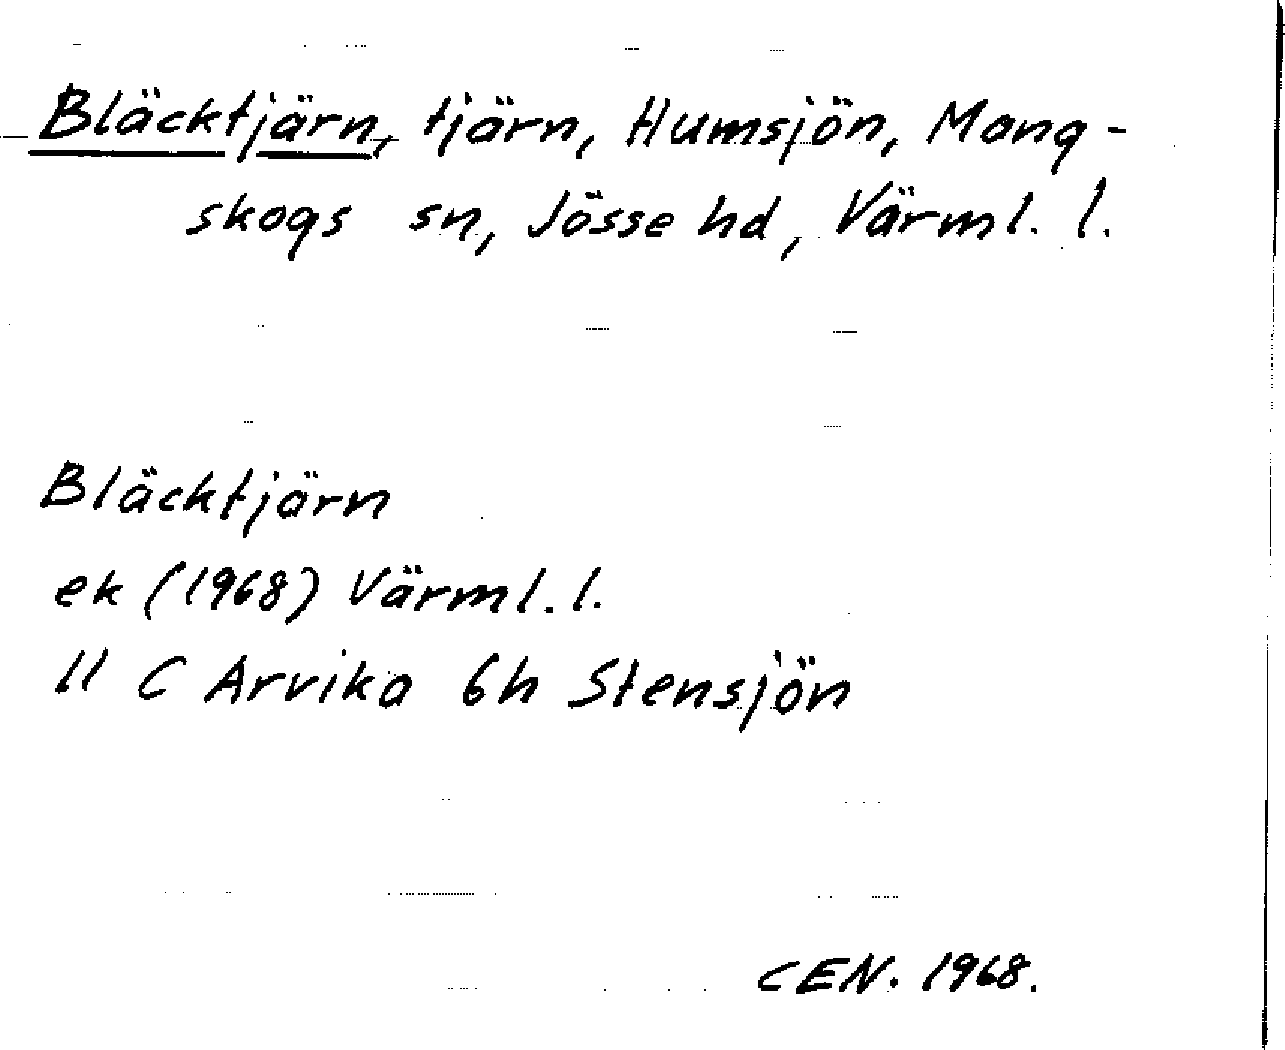 Bläcktjärn, tjärn, Humsjön, Mang-
skogs sn, Jösse hd, Värml. l.
Bläcktjärn
ek (1968) Värml. l.
11 C Arvika 6h Stensjön
CEN. 1968.